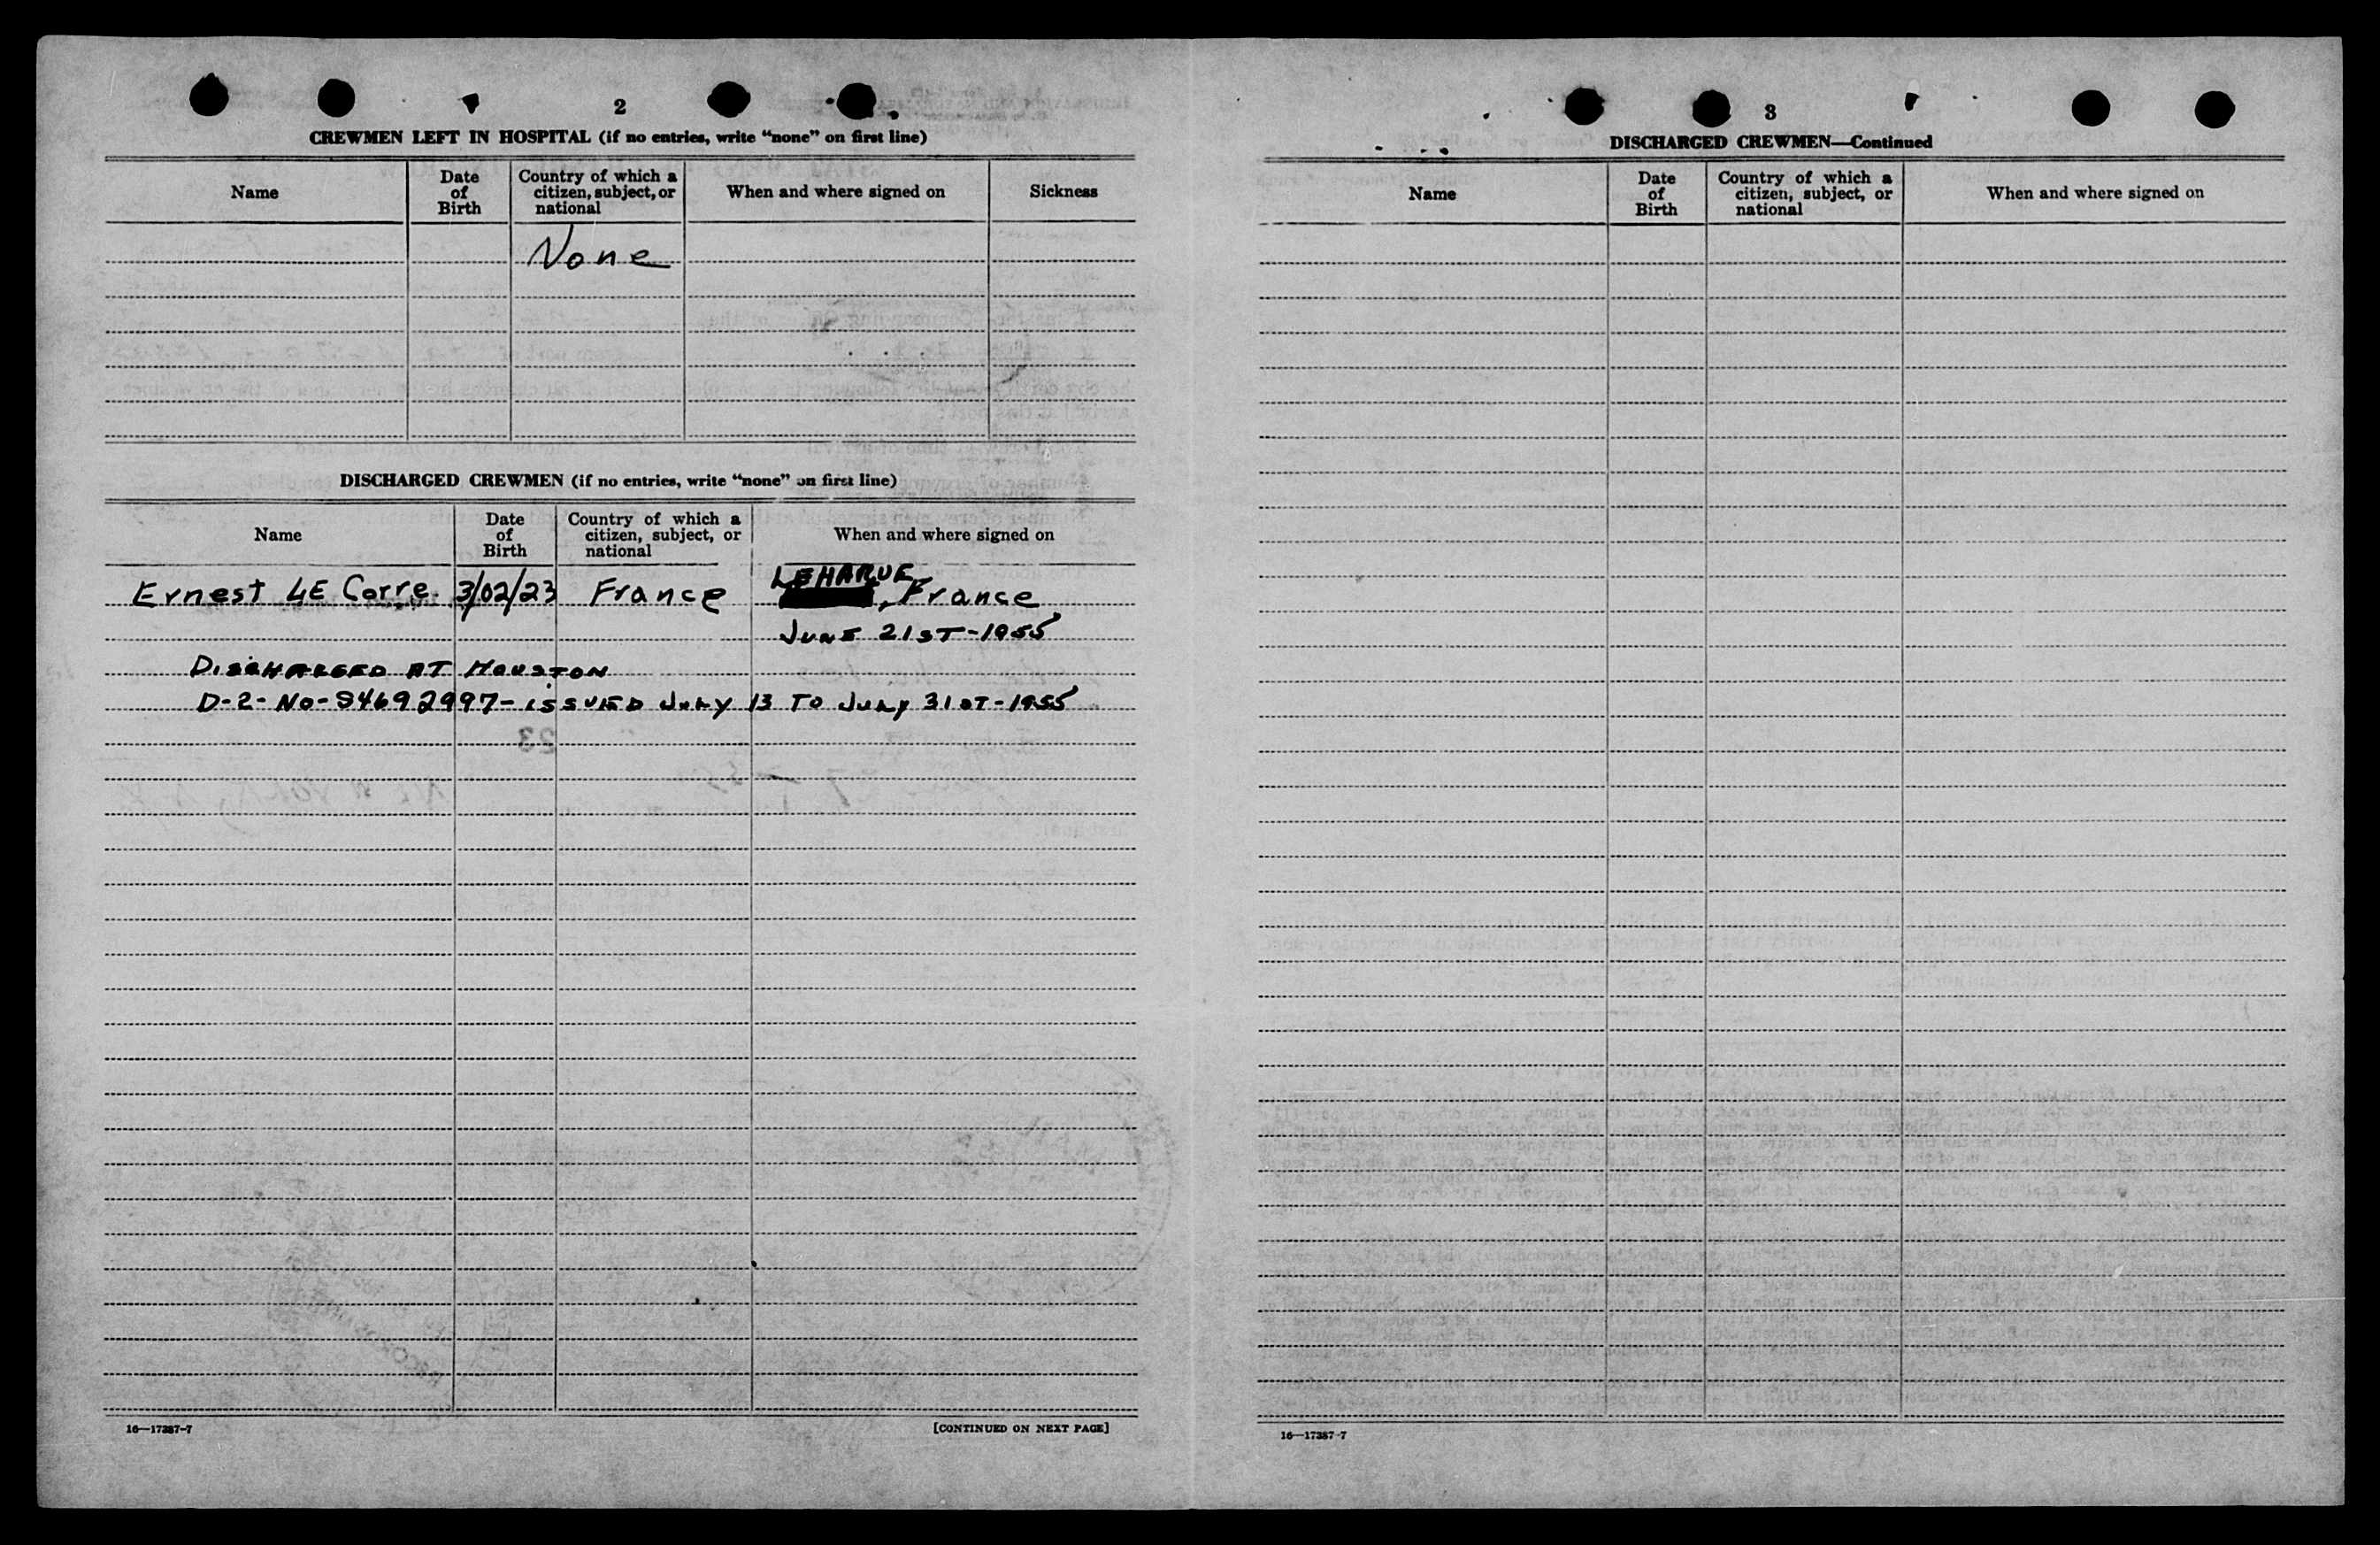 2
CREWMEN LEFT IN HOSPITAL (if no entries, write "none" on first line)
Name
Date of Birth
Country of which a citizen, subject, or national
When and where signed on
Sickness
None
DISCHARGED CREWMEN (if no entries, write "none" on first line)
Name
Date of Birth
Country of which a citizen, subject, or national
When and where signed on
LEHARUE
Ernest LE Corre 3/02/23 France , France
JUNE 21ST-1955
DISCHARGED AT HOUSTON
D-2-No-S4692997-ISSUED JULY 13 TO JULY 31ST-1955
16—17387-7
[CONTINUED ON NEXT PAGE]
3
DISCHARGED CREWMEN—Continued
Name
Date of Birth
Country of which a citizen, subject, or national
When and where signed on
16—17387-7